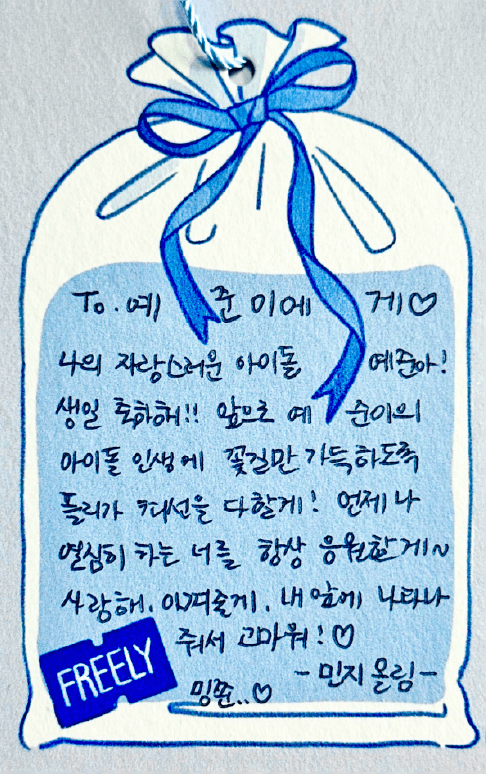 To. 예준이에게♡
나의 자랑스러운 아이돌 예준아!
생일 축하해!! 앞으로 예준이의
아이돌 인생에 꽃길만 가득하도록
플리가 최선을 다할게! 언제나
열심히 하는 너를 항상 응원할게~
사랑해. 아껴줄게. 내 앞에 나타나
줘서 고마워!♡
FREELY
-민지 올림-
밍쭌..♡